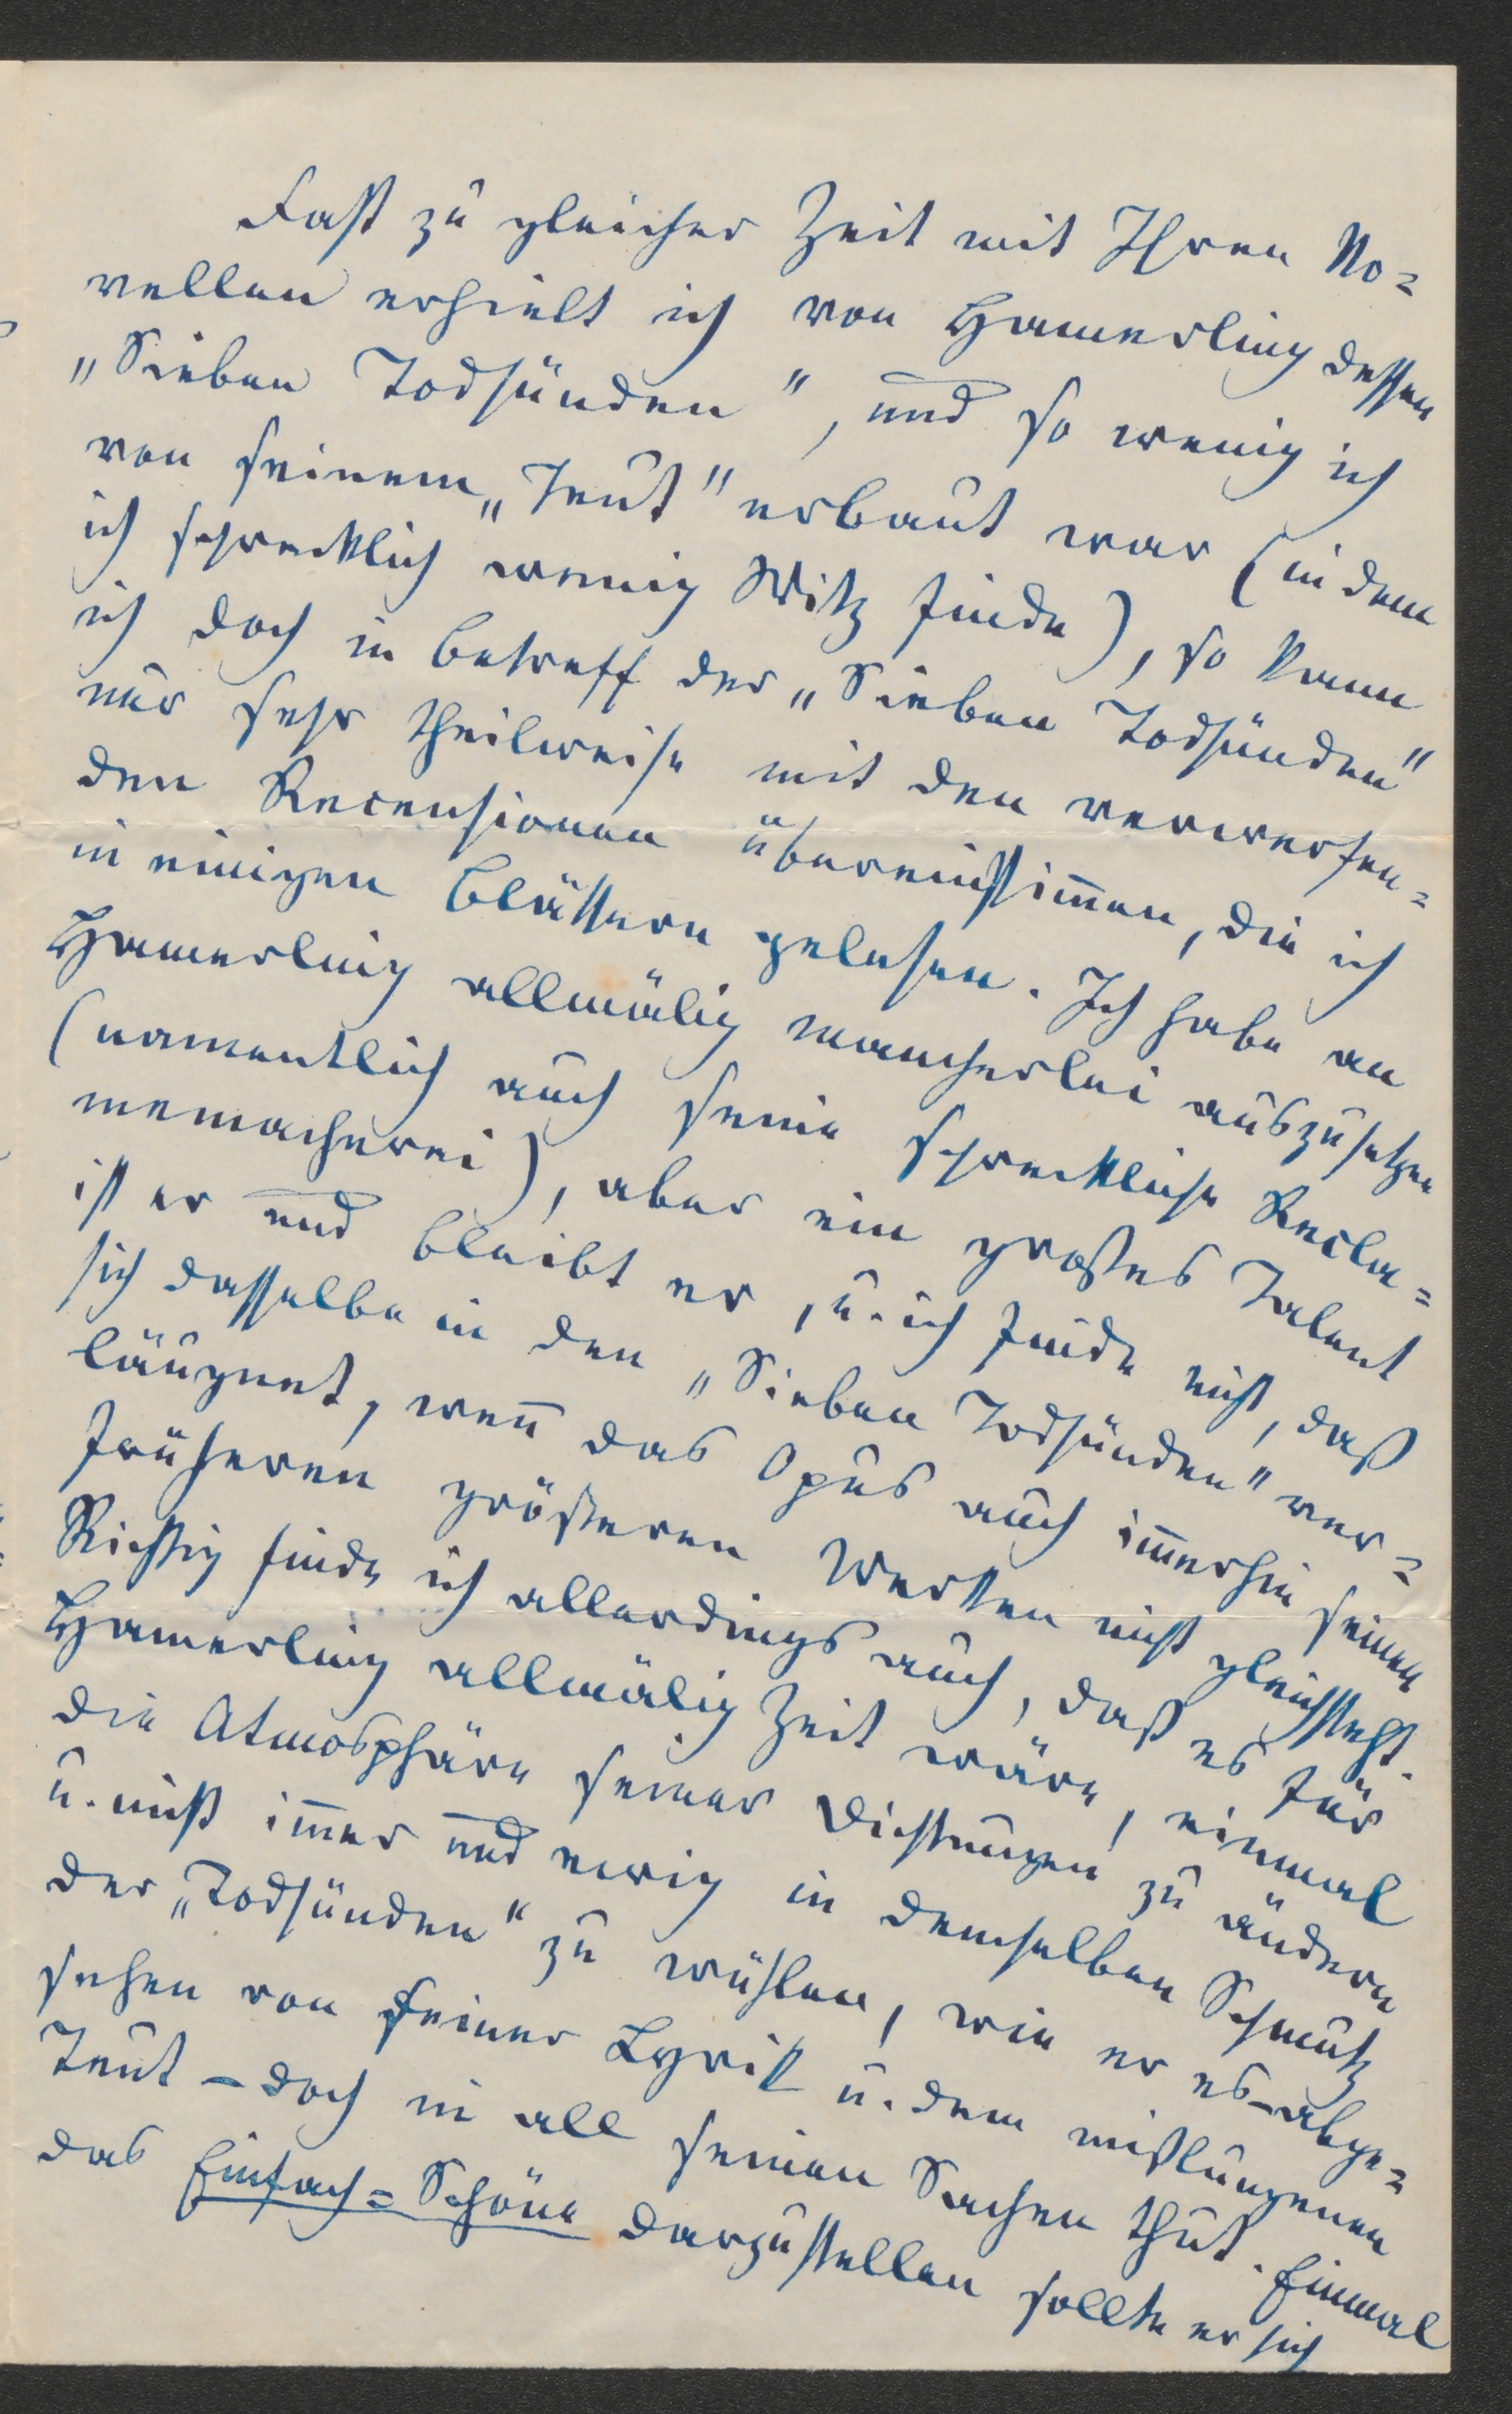 Fast zu gleicher Zeit mit Ihren No=
vellen erhielt ich von Hamerling dessen
„Sieben Todsünden“, und so wenig ich
von seinem „Teut“ erbaut war (in dem
ich schrecklich wenig Witz finde), so kann
ich doch in betreff der „Sieben Todsünden“
nur sehr theilweise mit den verwerfen=
den Recensionen übereinstim̅en, die ich
in einigen Blättern gelesen. Ich habe an
Hamerling allmälig mancherlei auszusetzen
(namentlich auch seine schreckliche Recla=
memacherei), aber ein großes Talent
ist er und bleibt er, u. ich finde nicht, daß
sich dasselbe in den „Sieben Todsünden“ ver=
läugnet, wen̅ das Opus auch im̅erhin seinen
früheren größeren Werken nicht gleichsteht.
Richtig finde ich allerdings auch, daß es für
Hamerling allmälig Zeit wäre, einmal
die Atmosphäre seiner Dichtungen zu ändern
u. nicht im̅er und ewig in demselben Schmutz
der „Todsünden“ zu wühlen, wie er es – abge=
sehen von seiner Lyrik u. dem mißlungenen
Teut – doch in all seinen Sachen thut. Einmal
das Einfach=Schöne darzustellen sollte er sich